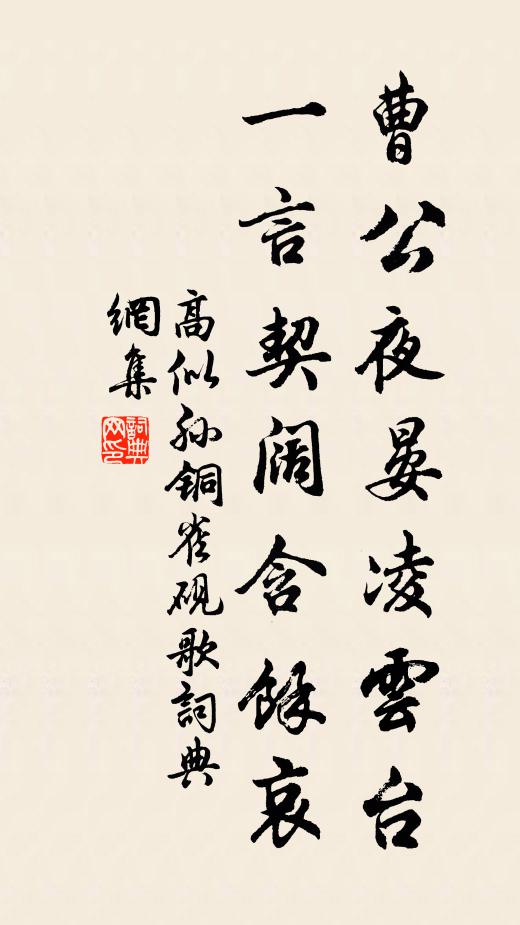 曹公夜晏凌雲台
一言契阔含餘哀
高似孙铜雀砚歌詞典
網集
詞典
网印